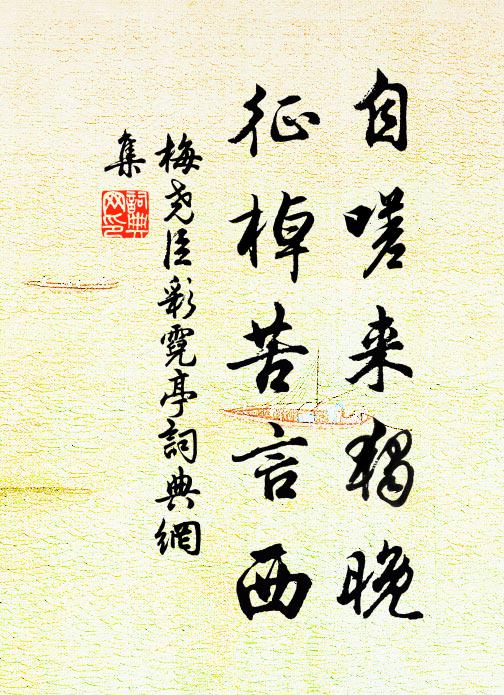 自嗟来独晚
征棹苦言西
梅尧臣彩霓亭詞典網
集
詞典网印